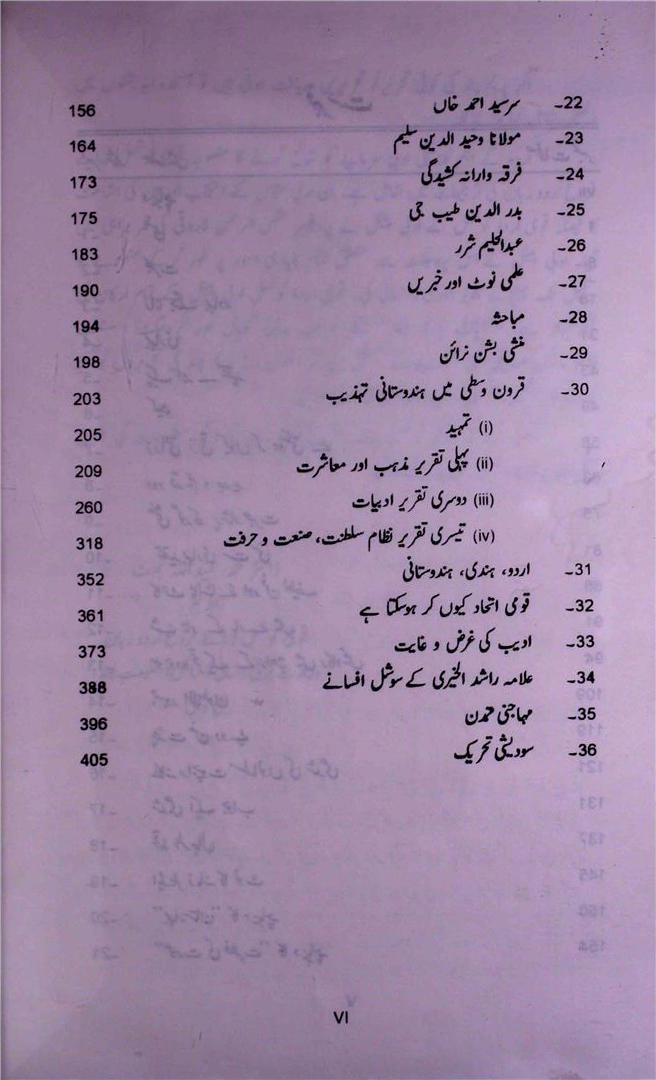 22۔ سرسید احمد خاں 156
23۔ مولانا وحید الدین سلیم 164
24۔ فرقہ وارانہ کشیدگی 173
25۔ بدر الدین طیب جی 175
26۔ عبدالحلیم شرر 183
27۔ علمی نوٹ اور خبریں 190
28۔ مباحثہ 194
29۔ منشی بشن نرائن 198
30۔ قرون وسطیٰ میں ہندوستانی تہذیب 203
(i) تمہید 205
(ii) پہلی تقریر مذہب اور معاشرت 209
(iii) دوسری تقریر ادبیات 260
(iv) تیسری تقریر نظام سلطنت، صنعت و حرفت 318
31۔ اردو، ہندی، ہندوستانی 352
32۔ قومی اتحاد کیوں کر ہوسکتا ہے 361
33۔ ادیب کی غرض و غایت 373
34۔ علامہ راشد الخیری کے سوشل افسانے 388
35۔ مہاجنی تمدن 396
36۔ سودیشی تحریک 405
VI